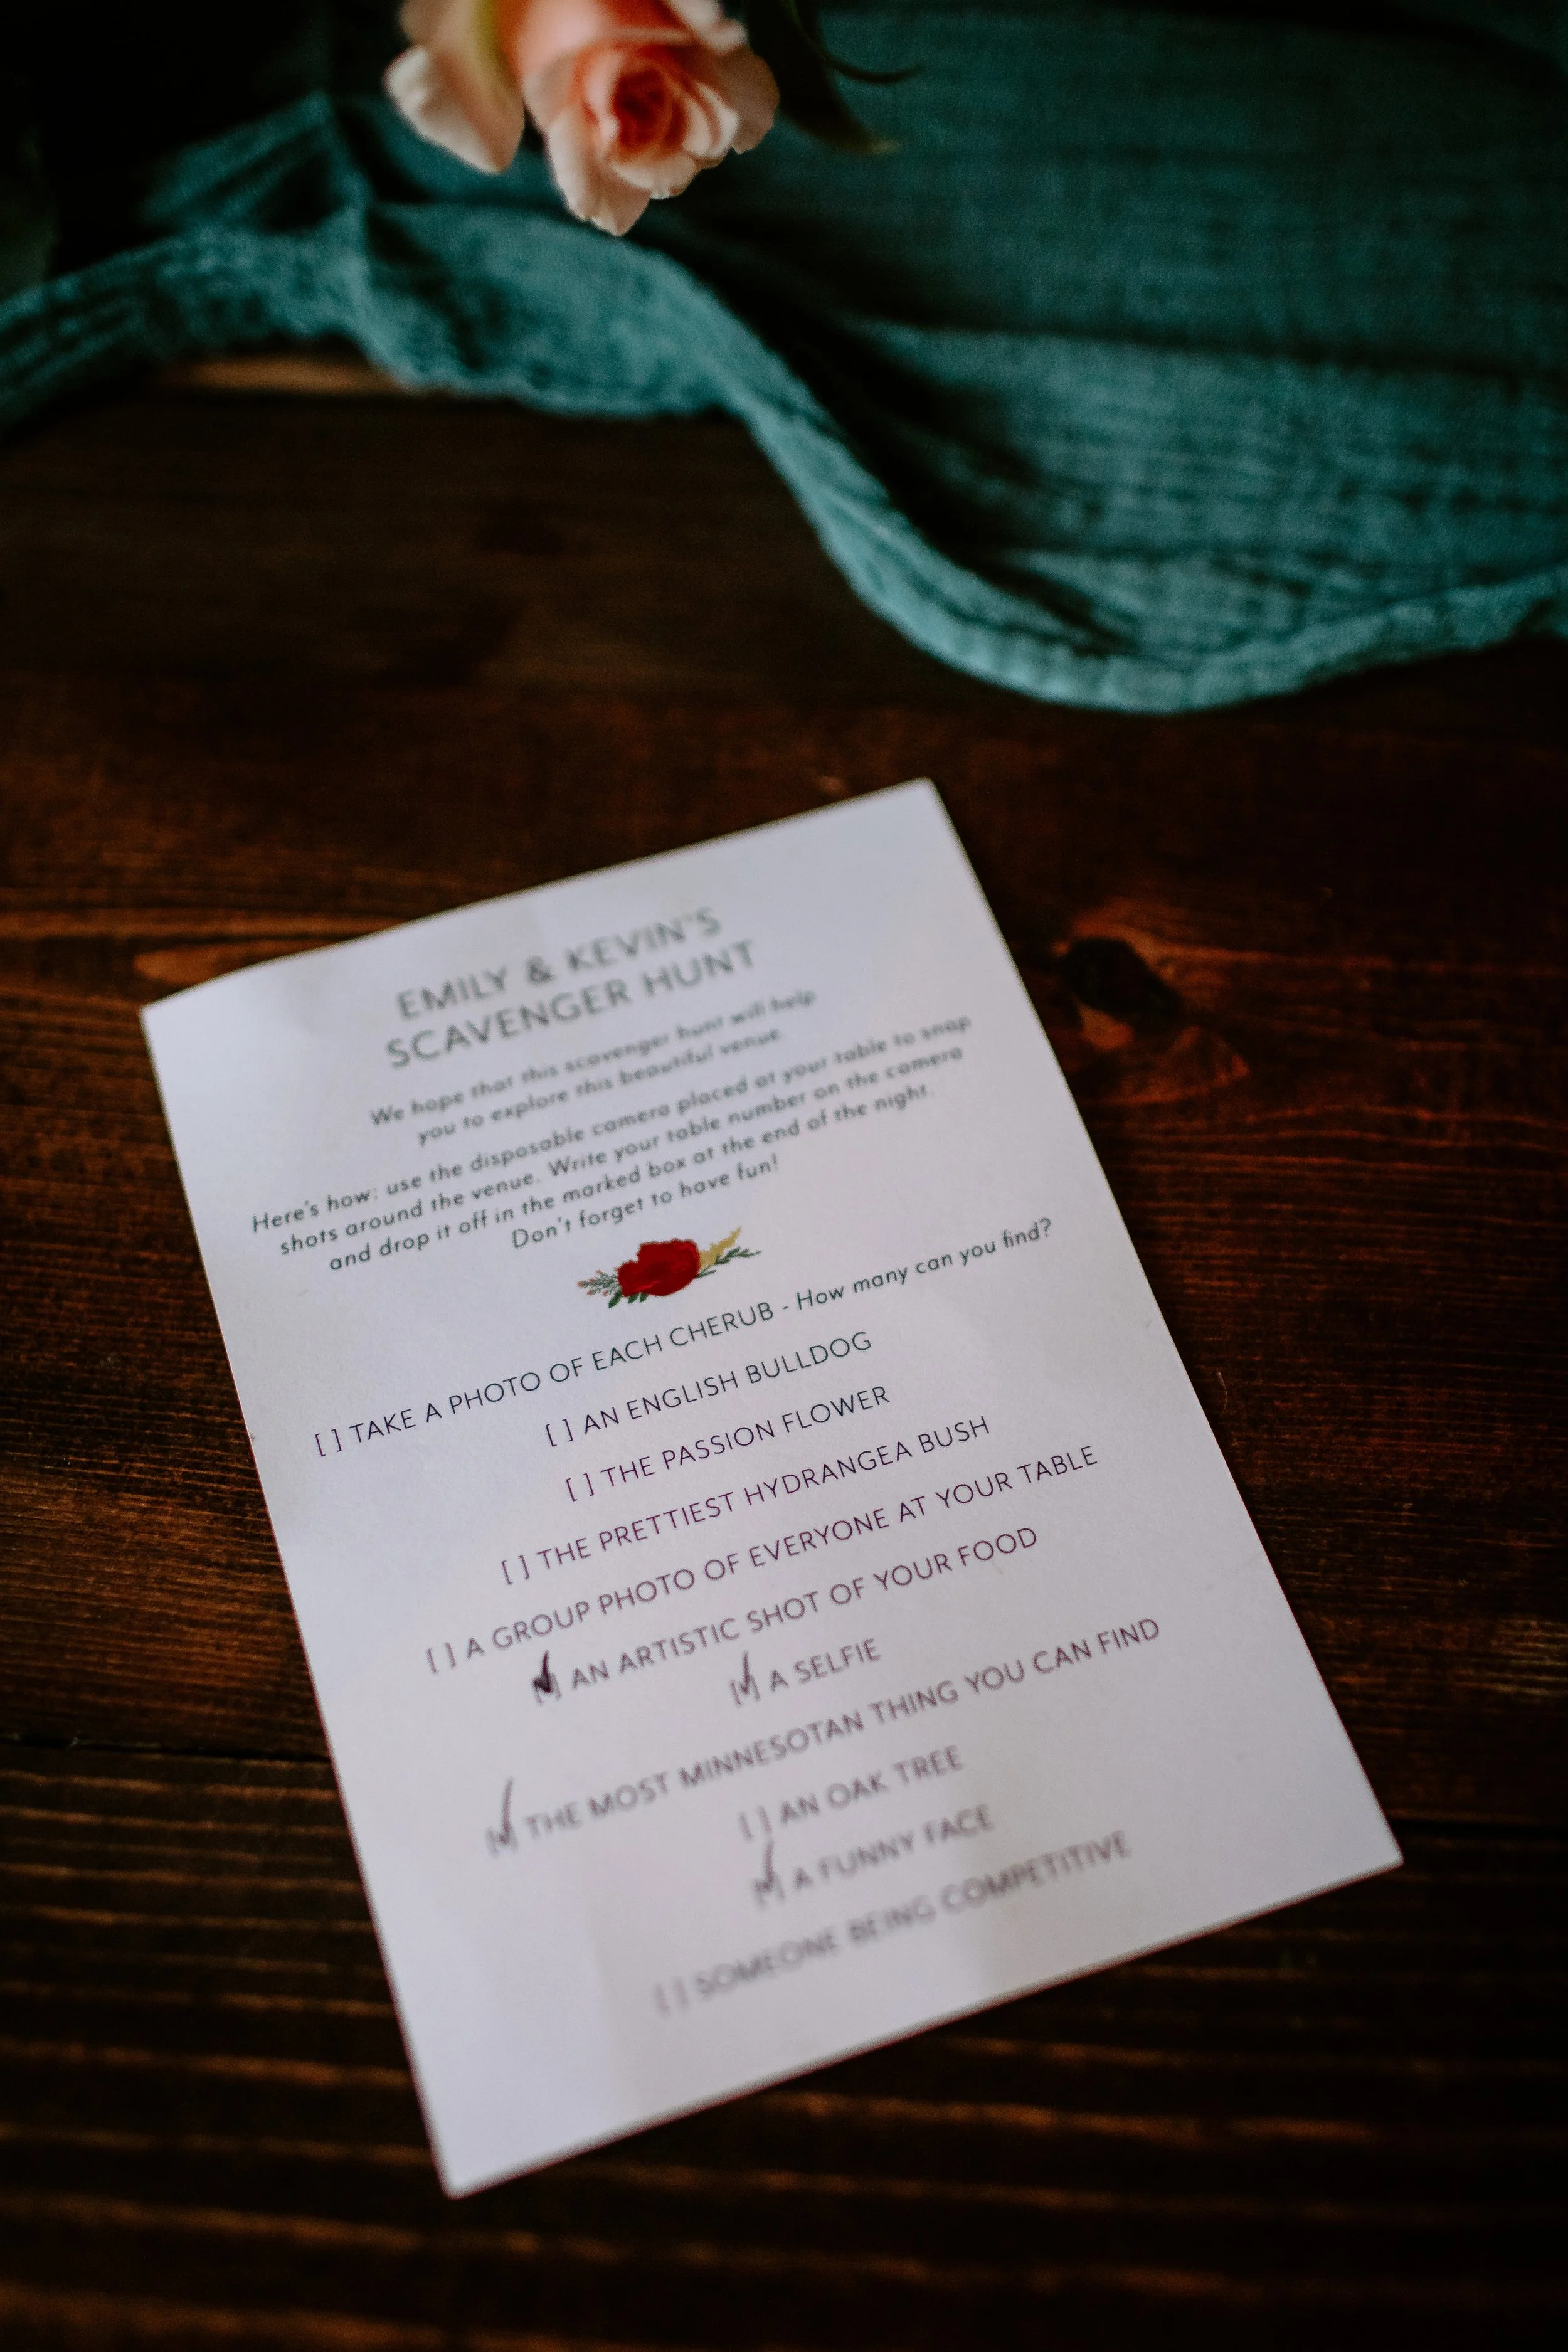 EMILY & KEVIN'S
SCAVENGER HUNT
We hope that this scavenger hunt will help
you to explore this beautiful venue.
Here's how: use the disposable camera placed at your table to snap
shots around the venue. Write your table number on the camera
and drop it off in the marked box at the end of the night.
Don't forget to have fun!
[ ] TAKE A PHOTO OF EACH CHERUB - How many can you find?
[ ] AN ENGLISH BULLDOG
[ ] THE PASSION FLOWER
[ ] THE PRETTIEST HYDRANGEA BUSH
[ ] A GROUP PHOTO OF EVERYONE AT YOUR TABLE
[✓] AN ARTISTIC SHOT OF YOUR FOOD
[✓] A SELFIE
[✓] THE MOST MINNESOTAN THING YOU CAN FIND
[ ] AN OAK TREE
[✓] A FUNNY FACE
[ ] SOMEONE BEING COMPETITIVE